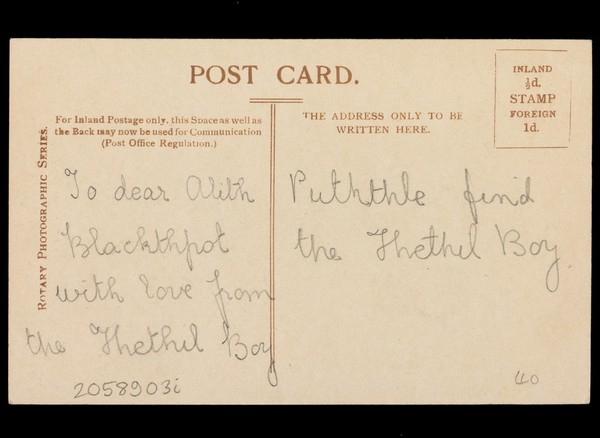 POST CARD.
INLAND
½d.
STAMP
FOREIGN
1d.
ROTARY PHOTOGRAPHIC SERIES.
For Inland Postage only, this Space as well as
the Back may now be used for Communication
(Post Office Regulation.)
THE ADDRESS ONLY TO BE
WRITTEN HERE.
To dear Alith
Blackthpot
with love from
the Thethil Boy
Puththle find
the Thethil Boy
2058903i
40